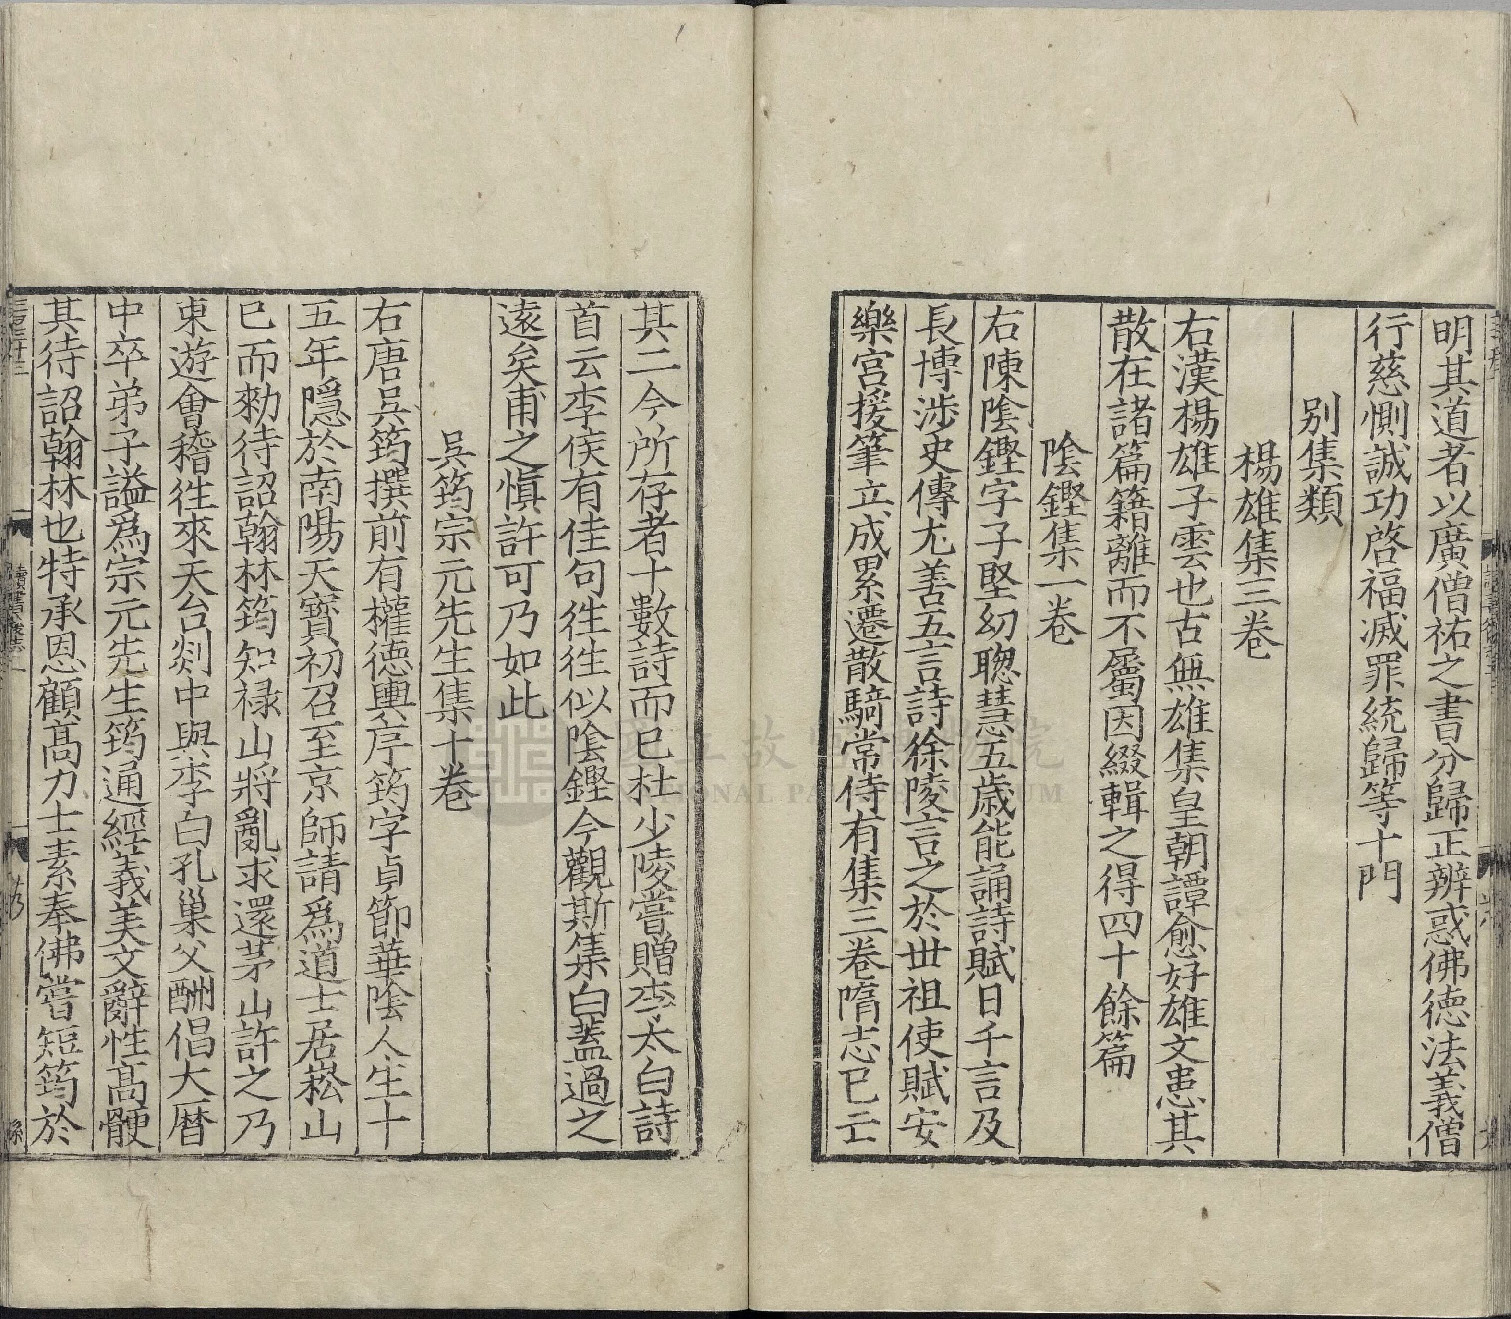 明其道者以廣僧祐之書分歸正辨惑佛徳法義僧
行慈惻誠功啓福滅罪統歸等十門
別集類
楊雄集三卷
右漢楊雄子雲也古無雄集皇朝譚愈好雄文患其
散在諸篇籍離而不屬因綴輯之得四十餘篇
陰鏗集一卷
右陳陰鏗字子堅幼聦慧五歳能誦詩賦日千言及
長博涉史傳尤善五言詩徐陵言之於世祖使賦安
樂宮援筆立成累遷散騎常侍有集三卷隋志已亡
其二今所存者十數詩而已杜少陵嘗贈李太白詩
首云李侯有佳句徃徃似陰鏗今觀斯集白蓋過之
遠矣甫之慎許可乃如此
吳筠宗元先生集十卷
右唐吳筠撰前有權徳輿序筠字貞節華陰人生十
五年隱於南陽天寶初召至京師請爲道士居崧山
已而勑待詔翰林筠知禄山將亂求還茅山許之乃
東遊會稽徃來天台剡中與李白孔巢父酬倡大曆
中卒弟子謚爲宗元先生筠通經義美文辭性髙鯁
其待詔翰林也特承恩顧髙力士素奉佛嘗短筠於
國立故宮博物院
NATIONAL PALACE MUSEUM